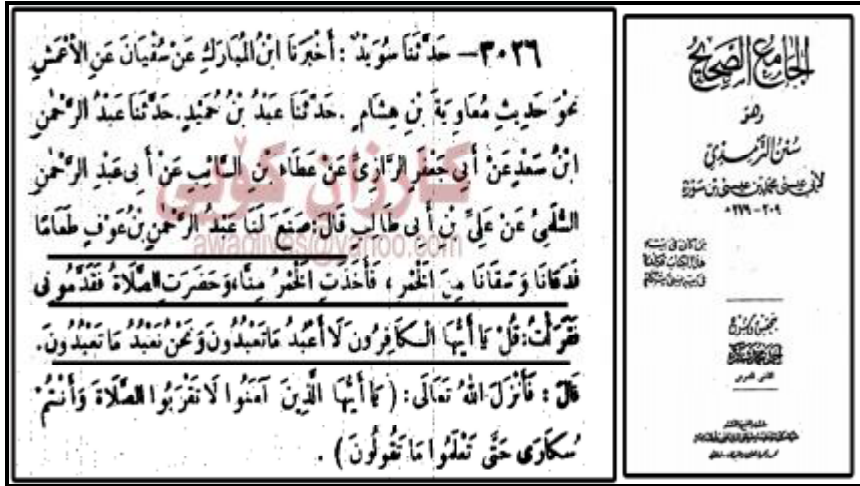 ٣٠٢٦ — حَدَّثَنَا سُوَيْدٌ : أَخْبَرَنَا ابْنُ المُبَارَكِ عَنْ سُفْيَانَ عَنِ الْأَعْمَشِ
نَحْوَ حَدِيثِ مُعَاوِيَةَ بْنِ هِشَامٍ . حَدَّثَنَا عَبْدُ بْنُ حُمَيْدٍ. حَدَّثَنَا عَبْدُ الرَّحْمٰنِ
ابْنُ سَعْدٍ عَنْ أَبِي جَعْفَرٍ الرَّازِيِّ عَنْ عَطَاءِ بْنِ السَّائِبِ عَنْ أَبِي عَبْدِ الرَّحْمٰنِ
السُّلَمِيِّ عَنْ عَلِيِّ بْنِ أَبِي طَالِبٍ قَالَ: صَنَعَ لَنَا عَبْدُ الرَّحْمٰنِ بْنُ عَوْفٍ طَعَامًا
فَدَعَانَا وَسَقَانَا مِنَ الْخَمْرِ ، فَأَخَذَتِ الْخَمْرُ مِنَّا، وَحَضَرَتِ الصَّلَاةُ فَقَدَّمُونِي
فَقَرَأْتُ: قُلْ يَا أَيُّهَا الْكَافِرُونَ لَا أَعْبُدُ مَا تَعْبُدُونَ وَنَحْنُ نَعْبُدُ مَا تَعْبُدُونَ.
قَالَ : فَأَنْزَلَ اللهُ تَعَالَى: ( يَا أَيُّهَا الَّذِينَ آمَنُوا لَا تَقْرَبُوا الصَّلَاةَ وَأَنْتُمْ
سُكَارَى حَتَّى تَعْلَمُوا مَا تَقُولُونَ ) .
كارزان كۆيى
awaqives@yahoo.com
الجامع الصحيح
وهو
سنن الترمذي
لأبي عيسى محمد بن عيسى بن سورة
٢٠٩ - ٢٧٩ هـ
من كان في بيته
هذا الكتاب فكأنما
في بيته نبي يتكلم
بتحقيق وشرح
أحمد محمد شاكر
القاضي الشرعي